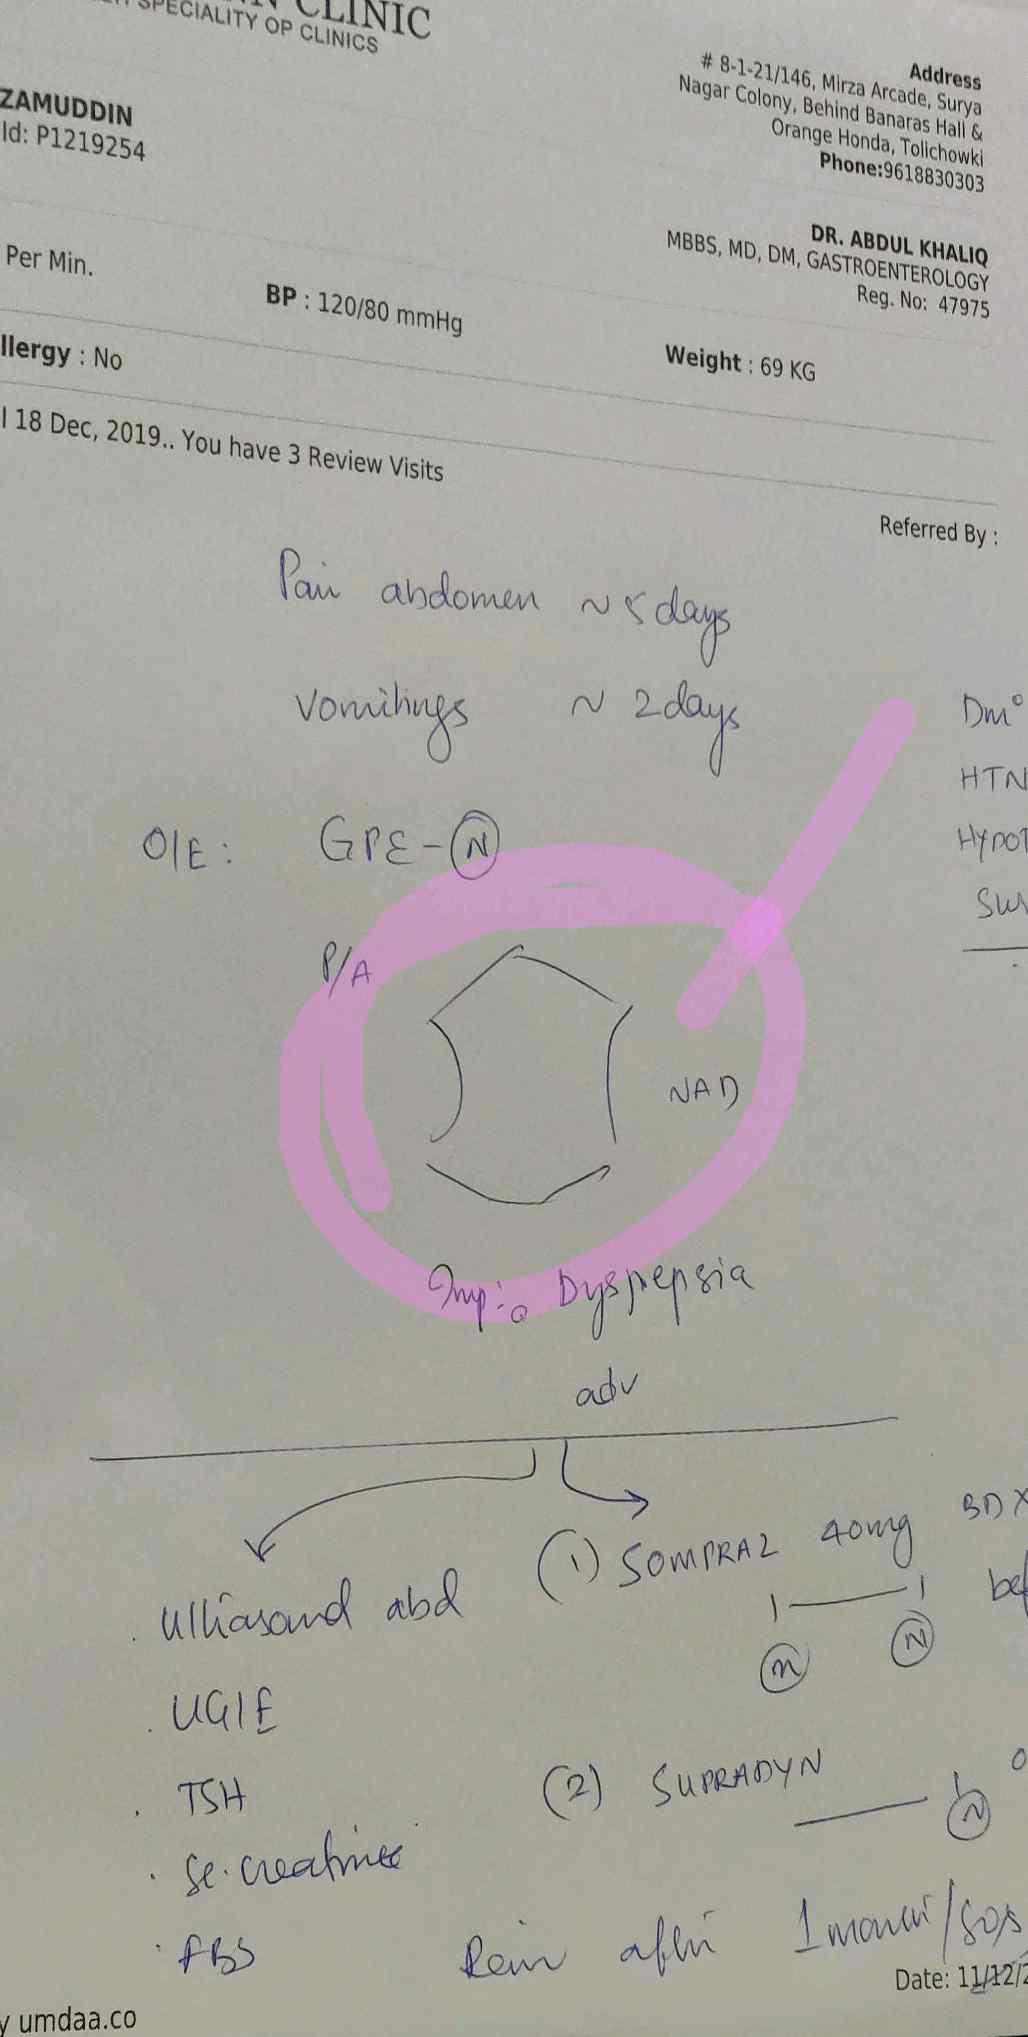 CLINIC
SPECIALITY OP CLINICS
Address
# 8-1-21/146, Mirza Arcade, Surya
Nagar Colony, Behind Banaras Hall &
Orange Honda, Tolichowki
Phone:9618830303
ZAMUDDIN
Id: P1219254
DR. ABDUL KHALIQ
MBBS, MD, DM, GASTROENTEROLOGY
Reg. No: 47975
Per Min.
BP : 120/80 mmHg
Weight : 69 KG
llergy : No
l 18 Dec, 2019.. You have 3 Review Visits
Referred By :
Pain abdomen ~ 5 days
Vomitings ~ 2 days
Dm°
HTN
HypoT
O/E: GPE - N
P/A
NAD
Imp:- Dyspepsia
adv
Ultrasound abd
UGIE
TSH
Se. creatinine
FBS
(1) SOMPRAZ 40mg BD X
1 — 1 bef
m N
(2) SUPRADYN
— 1
N
Rein after 1 month/SOS
Date: 11/12/2
y umdaa.co